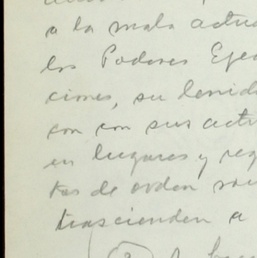 a la mala actua
los Poderes Ejec
ciones, su lenid
con con sus actu
en lugares y reg
tos de orden
trascienden a